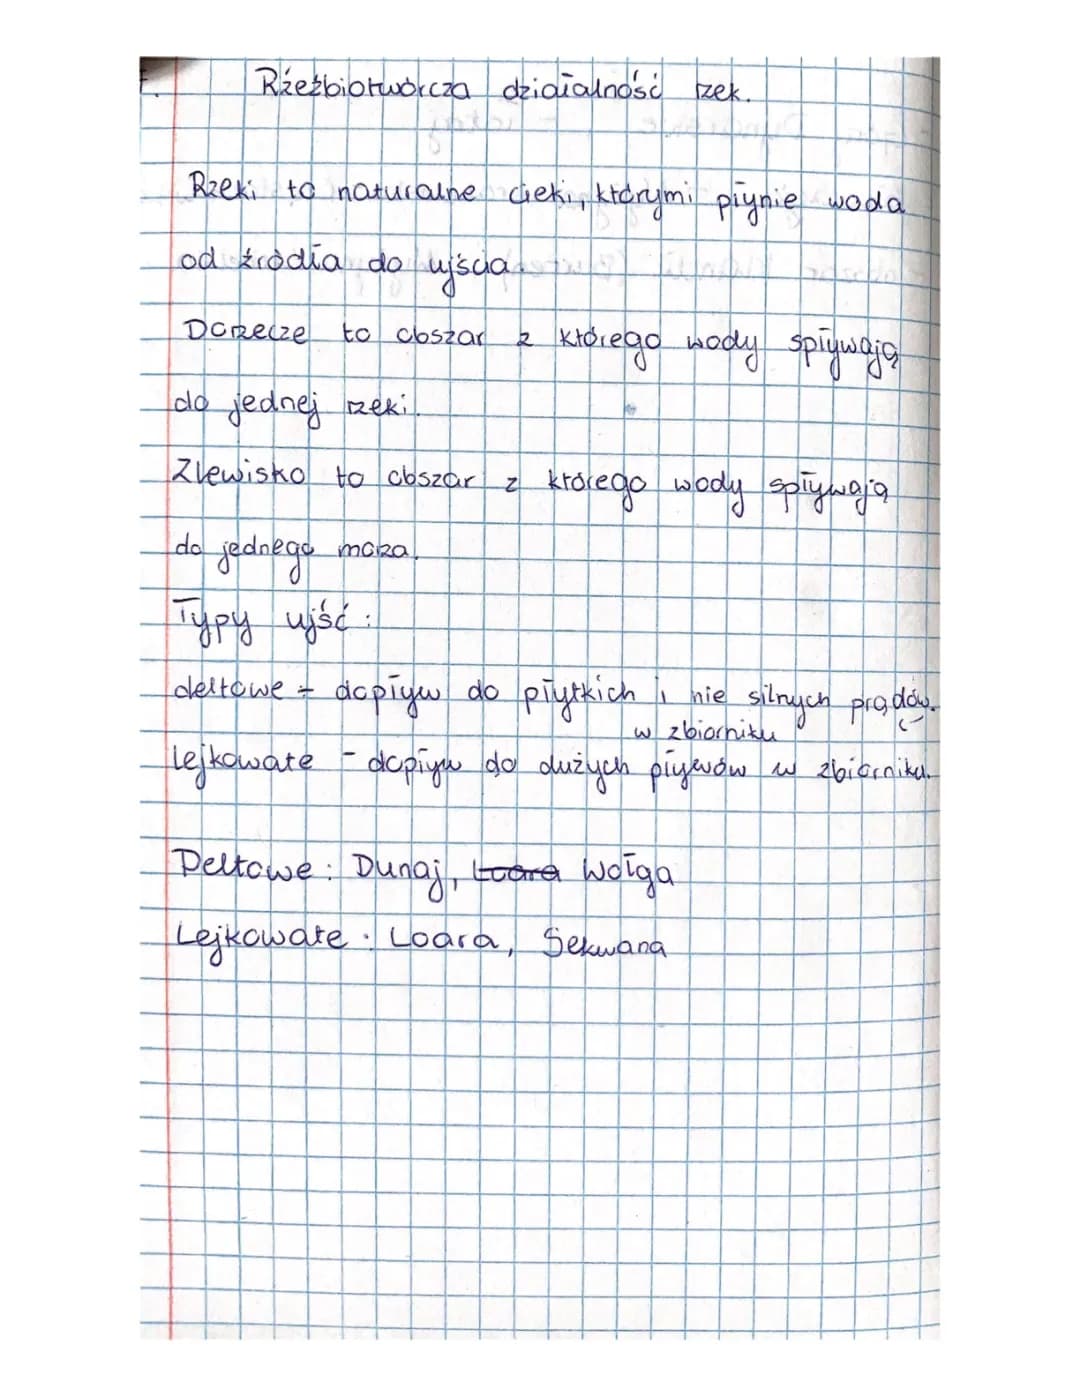 Rźeźbiotwórcza działalność rzek.
Rzeki to naturalne cieki, którymi płynie woda
od źródła do ujścia.
Dorzecze to obszar z którego wody spływają
do jednej rzeki.
Zlewisko to obszar z którego wody spływają
do jednego morza.
Typy ujść:
deltowe - dopływ do płytkich i nie silnych prądów.
w zbiorniku
Lejkowate - dopływ do dużych pływów w zbiorniku.
Deltowe: Dunaj, Loara Wołga
Lejkowate: Loara, Sekwana